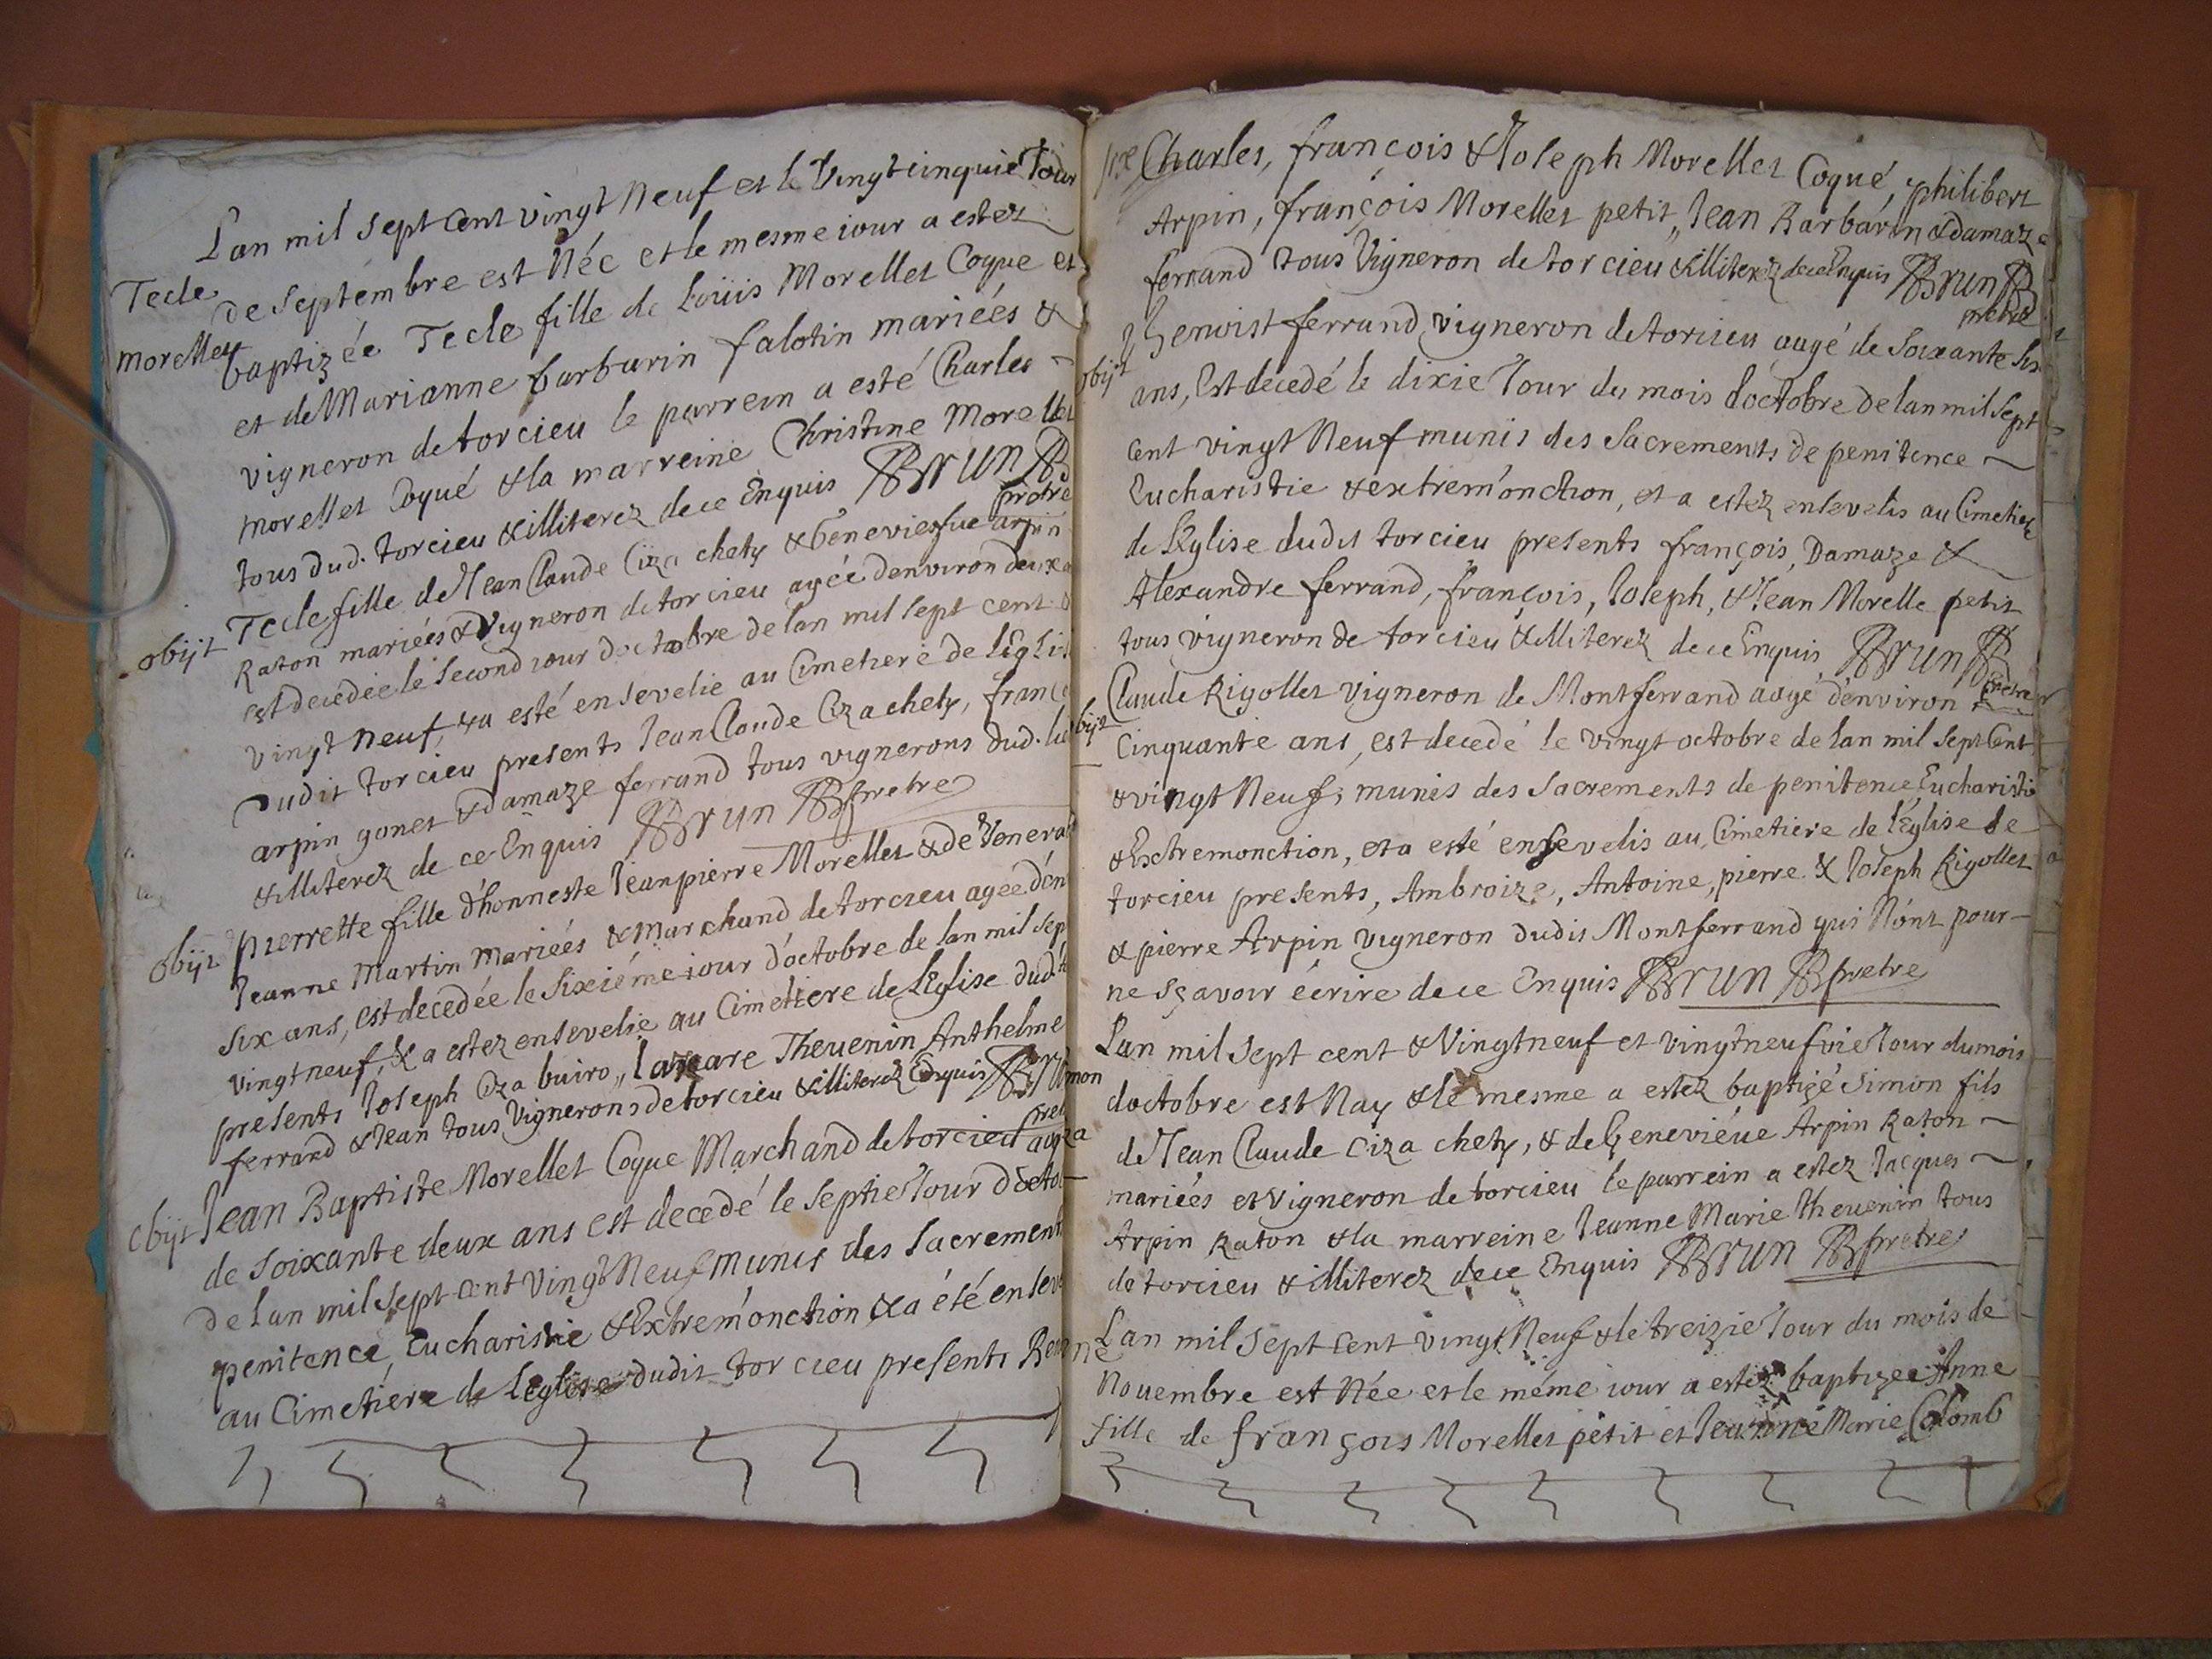 Lan mil sept cent vingt Neuf et le Vingt cinquie Jour
Tecle
de septembre est Née et le mesme iour a estez
morellet
baptizée Tecle fille de Loüis Morellet Coque et
et de Marianne barbarin falotin mariées &
vigneron de torcieu le parrein a esté Charles
morellet Coqué & la marreine Christine Morellet
tous dud. torcieu & illiterez de ce Enquis Brun
prêtre
Tecle fille de Jean Claude Ciza chety & Geneviesue arpin
obijt
Raton mariées & Vigneron de torcieu agée denviron deux a
est decedée le second iour doctobre de lan mil sept cent
vingt neuf, & a esté ensevelie au Cimetiere de leglis
Dudit torcieu presents Jean Claude Ciza chety, franc
arpin gonet & damaze ferrand tous vignerons dud. lu
& illiterez de ce Enquis Brun prêtre
obijt pierrette fille d'honneste Jean pierre Morellet & de Venerab
Jeanne Martin mariées & marchand de torcieu agée d'en
six ans, est decedée le sixiéme iour d'octobre de lan mil sep
vingt neuf, & a estez ensevelie au Cimetiere de leglise dud. t
presents Joseph Ciza buiro, Lazare Thevenin Anthelme
ferrand & Jean tous Vignerons de torcieu & illiterez Enquis Brun
pret
obijt Jean Baptiste Morellet Coque Marchand de torcieu
de soixante deux ans est decedé le septie Jour Docto
de lan mil sept cent Vingt Neuf Munis des sacrement
penitence, Eucharistie & Extrem'onction & a été enseve
au Cimetiére de leglise dudit torcieu presents
Charles, françois & Joseph Morellet Coqué, philibert
Arpin, françois Morellet petit, Jean Barbarin & damaze
ferrand tous Vigneron de torcieu & illiterez de ce Enquis Brun
prêtre
obijt
Benoist ferrand vigneron de torcieu aagé de Soixante six
ans, Est decedé le dixie Jour du mois doctobre de lan mil sept
cent vingt Neuf munis des Sacrements de penitence
Eucharistie & extrem'onction, et a estez ensevelis au Cimetiere
de l'Eglise dudit torcieu presents françois, Damaze &
Alexandre ferrand, françois, Joseph, & Jean Morelle petit
tous vigneron de torcieu & illiterez de ce Enquis Brun
prêtre
Claude Rigollet vigneron de Montferrand aagé d'environ
obijt
Cinquante ans, est decedé le vingt octobre de lan mil sept Cent
& vingt Neuf, munis des sacrements de penitence, Eucharistie
& Extremonction, et a esté ensevelis au Cimetiere de l'Eglise de
torcieu presents, Ambroize, Antoine, pierre & Joseph Rigollet
& pierre Arpin vigneron dudit Montferrand qui N'ont pour
ne sçavoir écrire de ce Enquis Brun prêtre
Lan mil sept cent & Vingt neuf et vingt neufvie Jour du mois
doctobre est Nay & le mesme a estez baptizé Simon fils
de Jean Claude Ciza chety, & de Geneviéue Arpin Raton
mariées et Vigneron de torcieu le parrein a estez Jacques
Arpin Raton & la marreine Jeanne Marie Thevenin tous
de torcieu & illiterez de ce Enquis Brun prêtre
Lan mil sept cent vingt Neuf & le treizie Jour du mois de
Nouembre est Née et le méme iour a estez baptizée Anne
fille de françois Morellet petit et Jeanne Marie Colomb